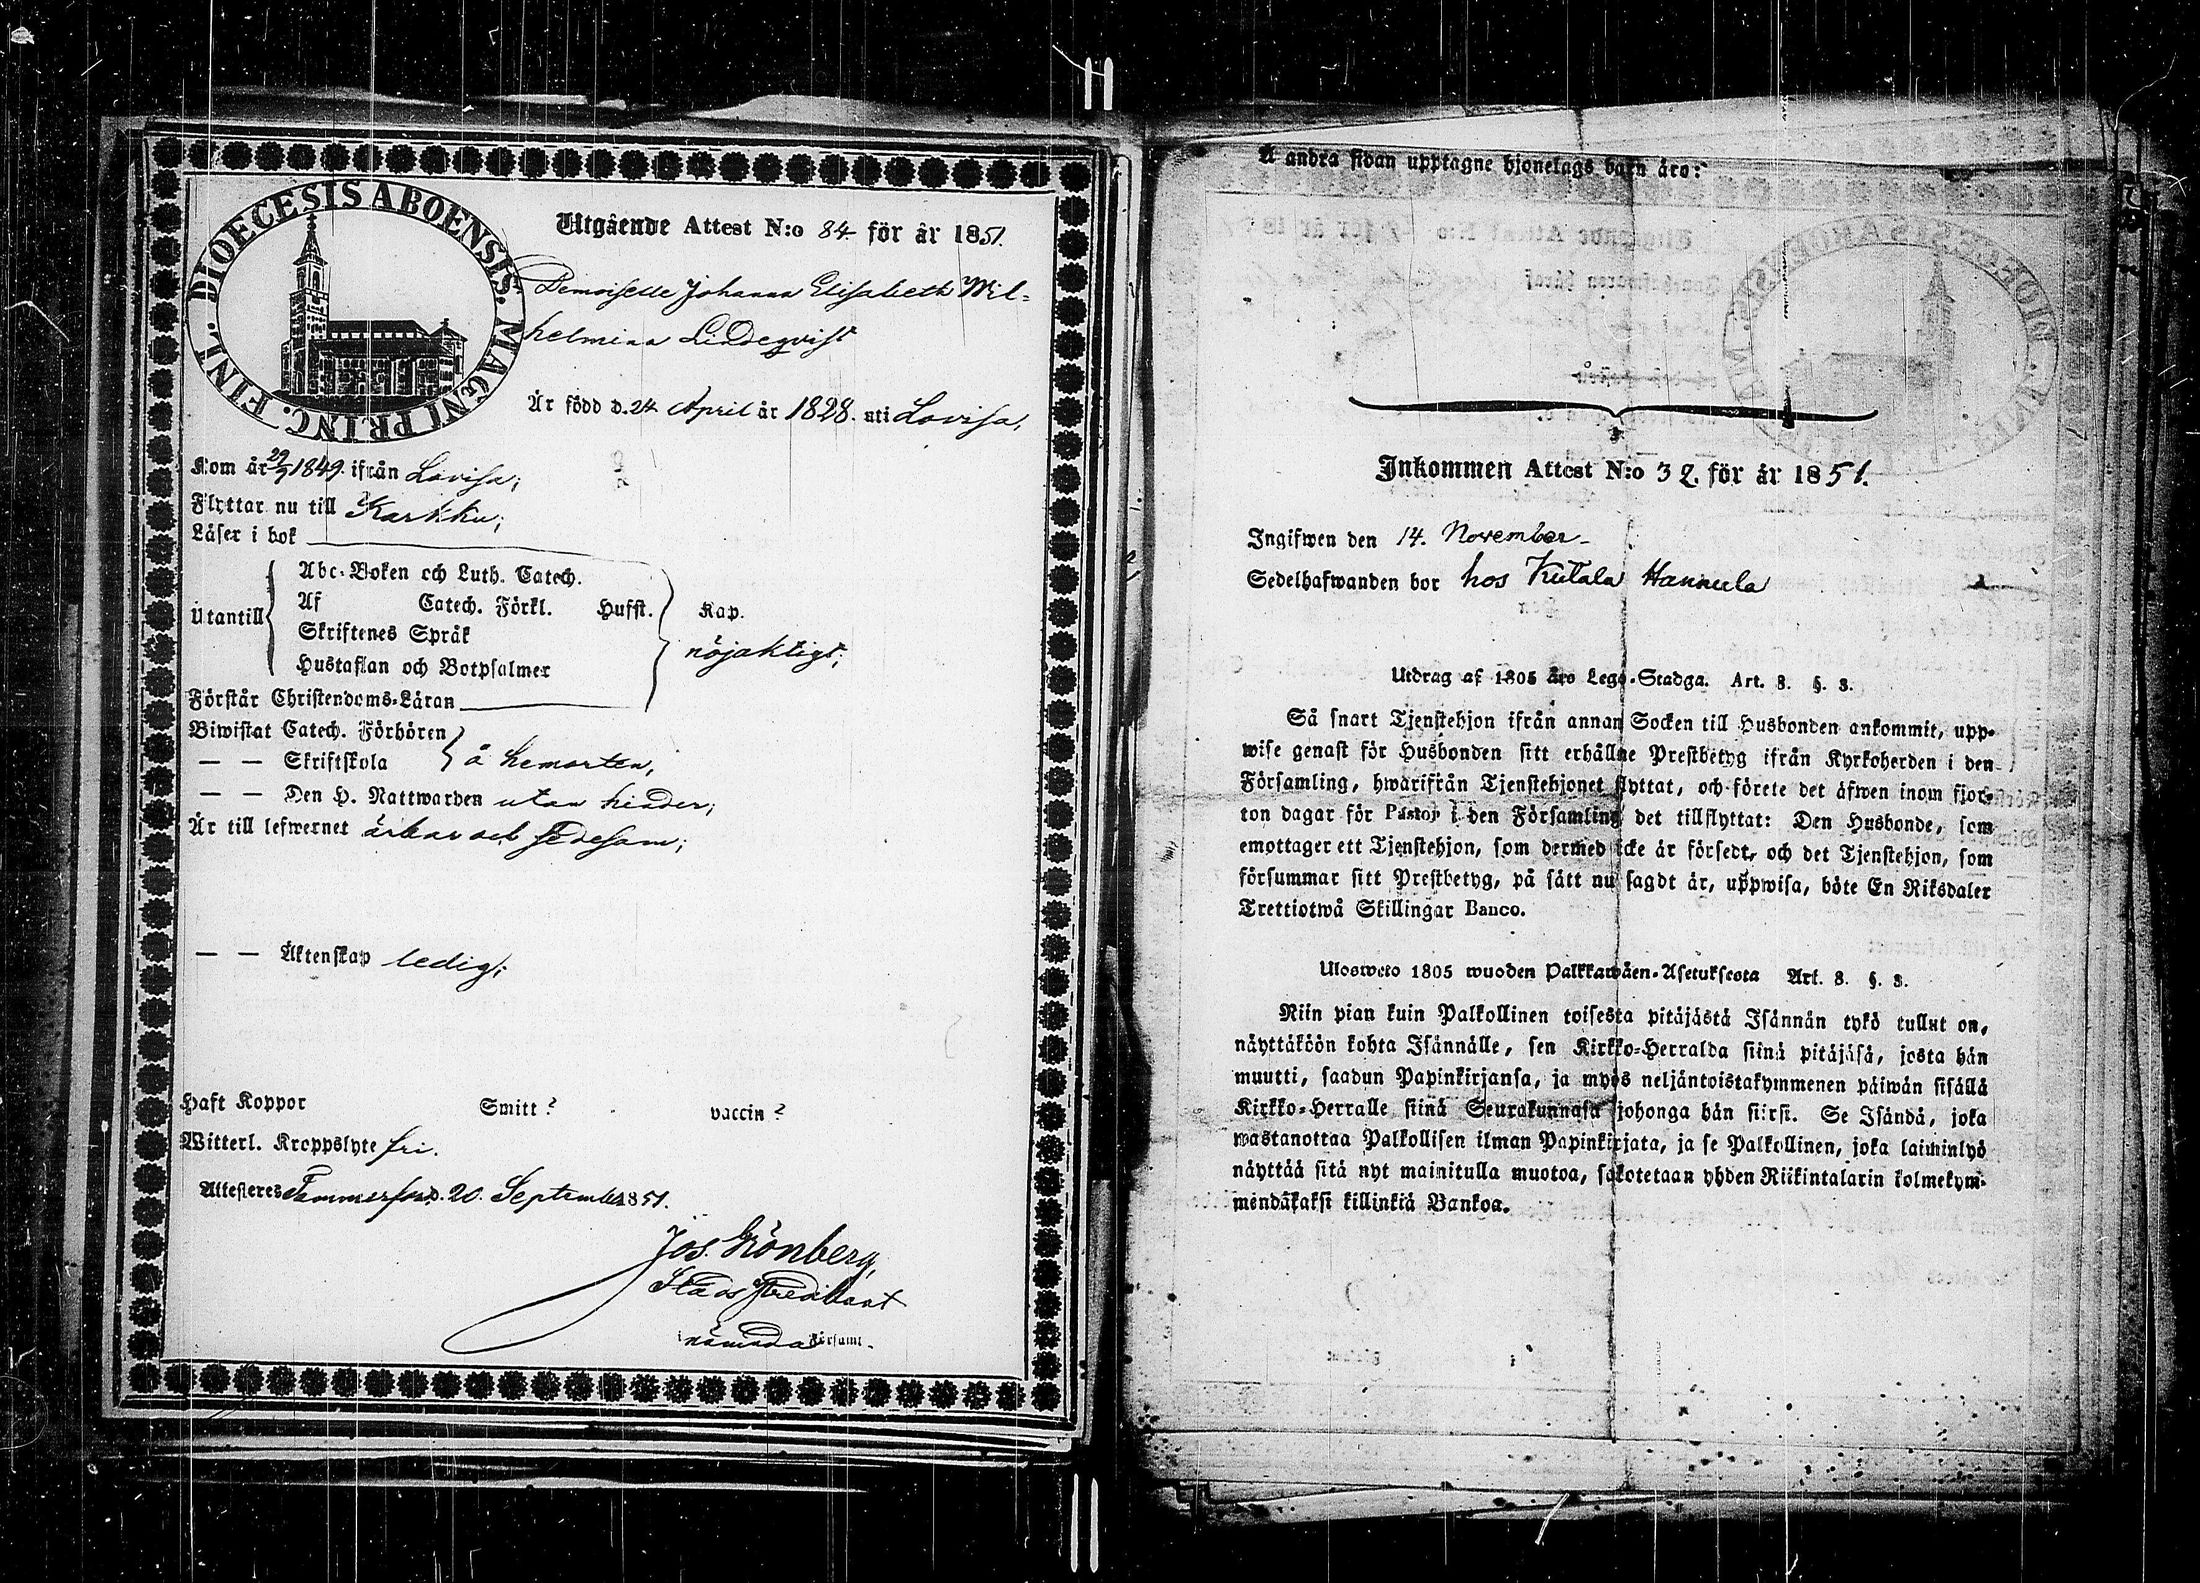 DIOECESIS ABOENSIS. MAGNI PRINC. FINL.
Utgående Attest N:o 84 för år 1851.
Demoiselle Johanna Elisabeth Wil-
helmina Lindeqvist
Är född d. 24 April år 1828. uti Lovisa,
Kom år 29/9 1849. ifrån Lovisa;
Flyttar nu till Karkku;
Läser i bok
Utantill
Abc-Boken och Luth. Catech.
Af Catech. Förkl. Hufst. Kap.
Skriftenes Språk
nöjaktigt;
Hustaflan och Botpsalmer
Förstår Christendoms-Läran
Biwistat Catech. Förhören
— — Skriftskola å hemorten,
— — Den H. Nattwarden utan hinder;
Är till lefwernet ärbar och sedesam;
— — Äktenskap ledig;
Haft Koppor Smitt? vaccin?
Witterl. Kroppslyte fri.
Attesteres Tammerfors d. 20. September 1851.
Jos. Grönberg,
Stads Predikant
nämnda Församl.
Å andra sidan upptagne hjonelags barn äro:
Inkommen Attest N:o 32. för år 1851.
Ingifwen den 14. November
Sedelhafwanden bor hos Kutala Hannula
Utdrag af 1805 års Lego-Stadga. Art. 8. §. 3.
Så snart Tjenstehjon ifrån annan Socken till Husbonden ankommit, upp-
wise genast för Husbonden sitt erhållne Prestbetyg ifrån Kyrkoherden i den
Församling, hwarifrån Tjenstehjonet flyttat, och förete det äfwen inom fjor-
ton dagar för Pastor i den Församling det tillflyttat: Den Husbonde, som
emottager ett Tjenstehjon, som dermed icke är försedt, och det Tjenstehjon, som
försummar sitt Prestbetyg, på sätt nu sagdt är, uppwisa, böte En Riksdaler
Trettiotwå Skillingar Banco.
Ulosweto 1805 wuoden Palkkawäen-Asetuksesta Art. 8. §. 3.
Niin pian kuin Palkollinen toisesta pitäjästä Isännän tykö tullut on,
näyttäköön kohta Isännälle, sen Kirkko-Herralda siinä pitäjäsä, josta hän
muutti, saadun Papinkirjansa, ja myös neljäntoistakymmenen päiwän sisällä
Kirkko-Herralle siinä Seurakunnasa johonga hän siirsi. Se Isändä, joka
wastanottaa Palkollisen ilman Papinkirjata, ja se Palkollinen, joka laiminlyö
näyttää sitä nyt mainitulla muotoa, sakotetaan yhden Riikintalarin kolmekym-
mendäkaksi killinkiä Bankoa.